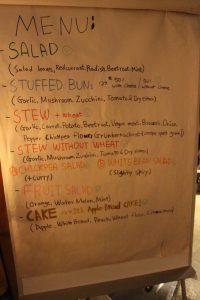 MENU:
- SALAD
(Salad leaves, Redcurrant, Radish, Beetroot, Mint)
- STUFFED BUNS 50% with Cheese / 50% without Cheese!
(Garlic, Mushroom, Zucchini, Tomato & Dry)
- STEW + wheat
(Garlic, Carrot, Potato, Beetroot, Vegan meat, Broccoli, Onion,
Pepper, Chickpea
- STEW WITHOUT WHEAT
(Garlic, Mushroom, Zucchini, Tomato & Dry)
- CHICKPEA SALAD WHITEBEAN SALAD
(+curry) (Slightly Spicy)
- FRUIT SALAD
(Orange, Water Melon, Mint)
- CAKE Apple-Bread CAKE!
(Apple, White Bread, Peach, Wheat Flour, Cinnamon)